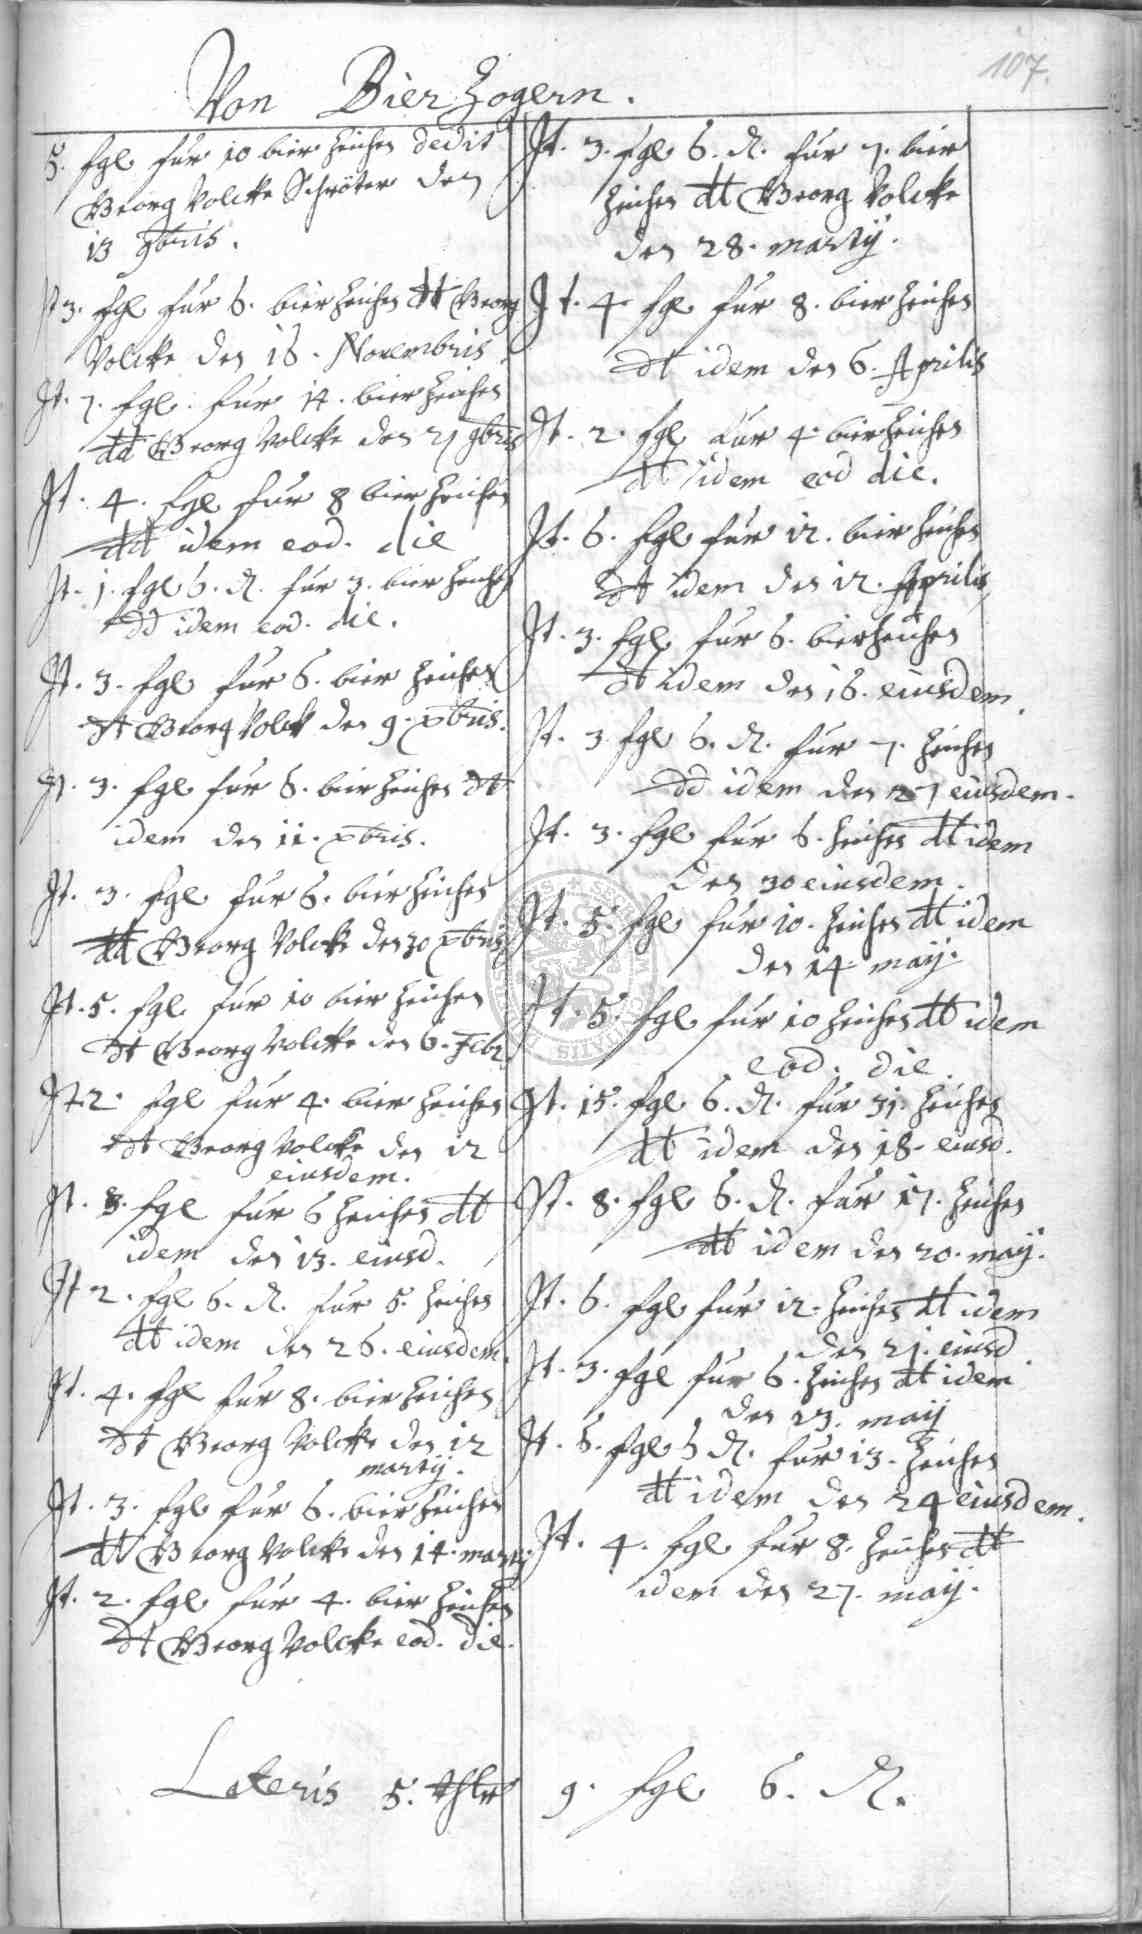 107.
Von Bier Zogern.
5. fgl fur 10 bier Zeichen dedit
Georg Volckke Schröter den
13 9bris.
It 3. fgl fur 6. bier Zeichen dt Georg
Volckke den 16. Novembris
It. 7. fgl. fur 14. bier Zeichen
dd Georg Volckke den 27 9bris
It. 4. fgl fur 8 bier Zeichen
dd idem eod. die
It. 1. fgl 6. d. fur 3. bier Zeichen
dd idem eod. die.
It. 3. fgl fur 6. bier Zeichen
dt Georg Volck den 9. xbris.
It. 3. fgl fur 6. bier Zeichen dt
idem den 11. xbris.
It. 3. fgl fur 6. bier Zeichen
dt Georg Volckke den 30 xbris
It. 5. fgl fur 10 bier Zeichen
dt Georg Volckke den 6. Feb
It 2. fgl fur 4. bier Zeichen
dt Georg Volckke den 12
eiusdem.
It. 3. fgl fur 6 Zeichen dt
idem den 13. eiusd.
It 2. fgl 6. d. fur 5. Zeichen
dt idem den 26. eiusdem.
It. 4. fgl fur 8. bier Zeichen
dt Georg Volckke den 12
martij.
It. 3. fgl fur 6. bier Zeichen
dt Georg Volckke den 14. martij
It. 2. fgl fur 4. bier Zeichen
dt Georg Volckke eod. die.
It. 3. fgl 6. d. fur 7. bier
Zeichen dt Georg Volckke
den 28. martij.
It. 4 fgl fur 8. bier Zeichen
dt idem den 6. Aprilis
It. 2. fgl fur 4. bier Zeichen
dt idem eod die.
It. 6. fgl fur 12. bier Zeichen
dt idem den 12. Aprilis
It. 3. fgl fur 6. bier Zeichen
dt idem den 16. eiusdem.
It. 3 fgl 6. d. fur 7. Zeichen
dd idem den 27 eiusdem.
It. 3. fgl fur 6. Zeichen dt idem
den 30 eiusdem.
It. 5. fgl fur 10. Zeichen dt idem
den 14 maij.
It. 5. fgl fur 10 Zeichen dt idem
eod. die.
It. 15. fgl 6. d. fur 31. Zeichen
dt idem den 18. eiusd.
It. 8. fgl 6. d. fur 17. Zeichen
dt idem den 20. maij.
It. 6. fgl fur 12. Zeichen dt idem
den 21. eiusd
It. 3. fgl fur 6. Zeichen dt idem
den 23. maij
It. 6. fgl 6 d. fur 13. Zeichen
dt idem den 24 eiusdem.
It. 4. fgl fur 8. Zeichen dt
idem den 27. maij.
Lateris 5. thlr 9. fgl 6. d.